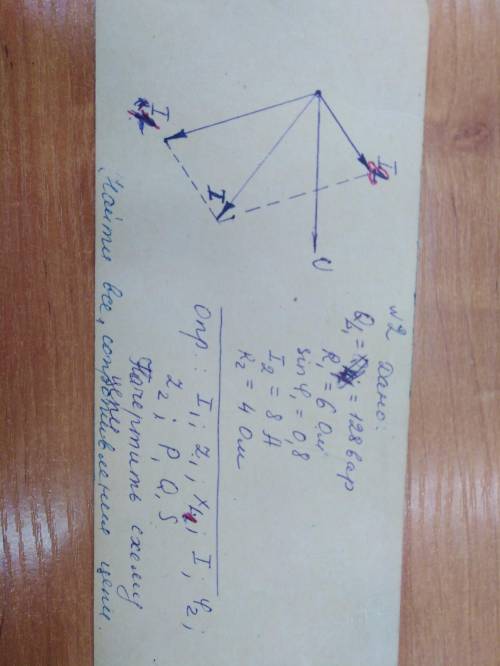 N2 Дано:
Q1 = 128 вар
R1 = 6 Ом
sin φ1 = 0,8
I2 = 8 А
R2 = 4 Ом
Опр.: I1; Z1; XL; I; φ2;
Z2; P, Q, S
Начертить схему
цепи
Найти все сопротивления цепи.
I
I
I
U